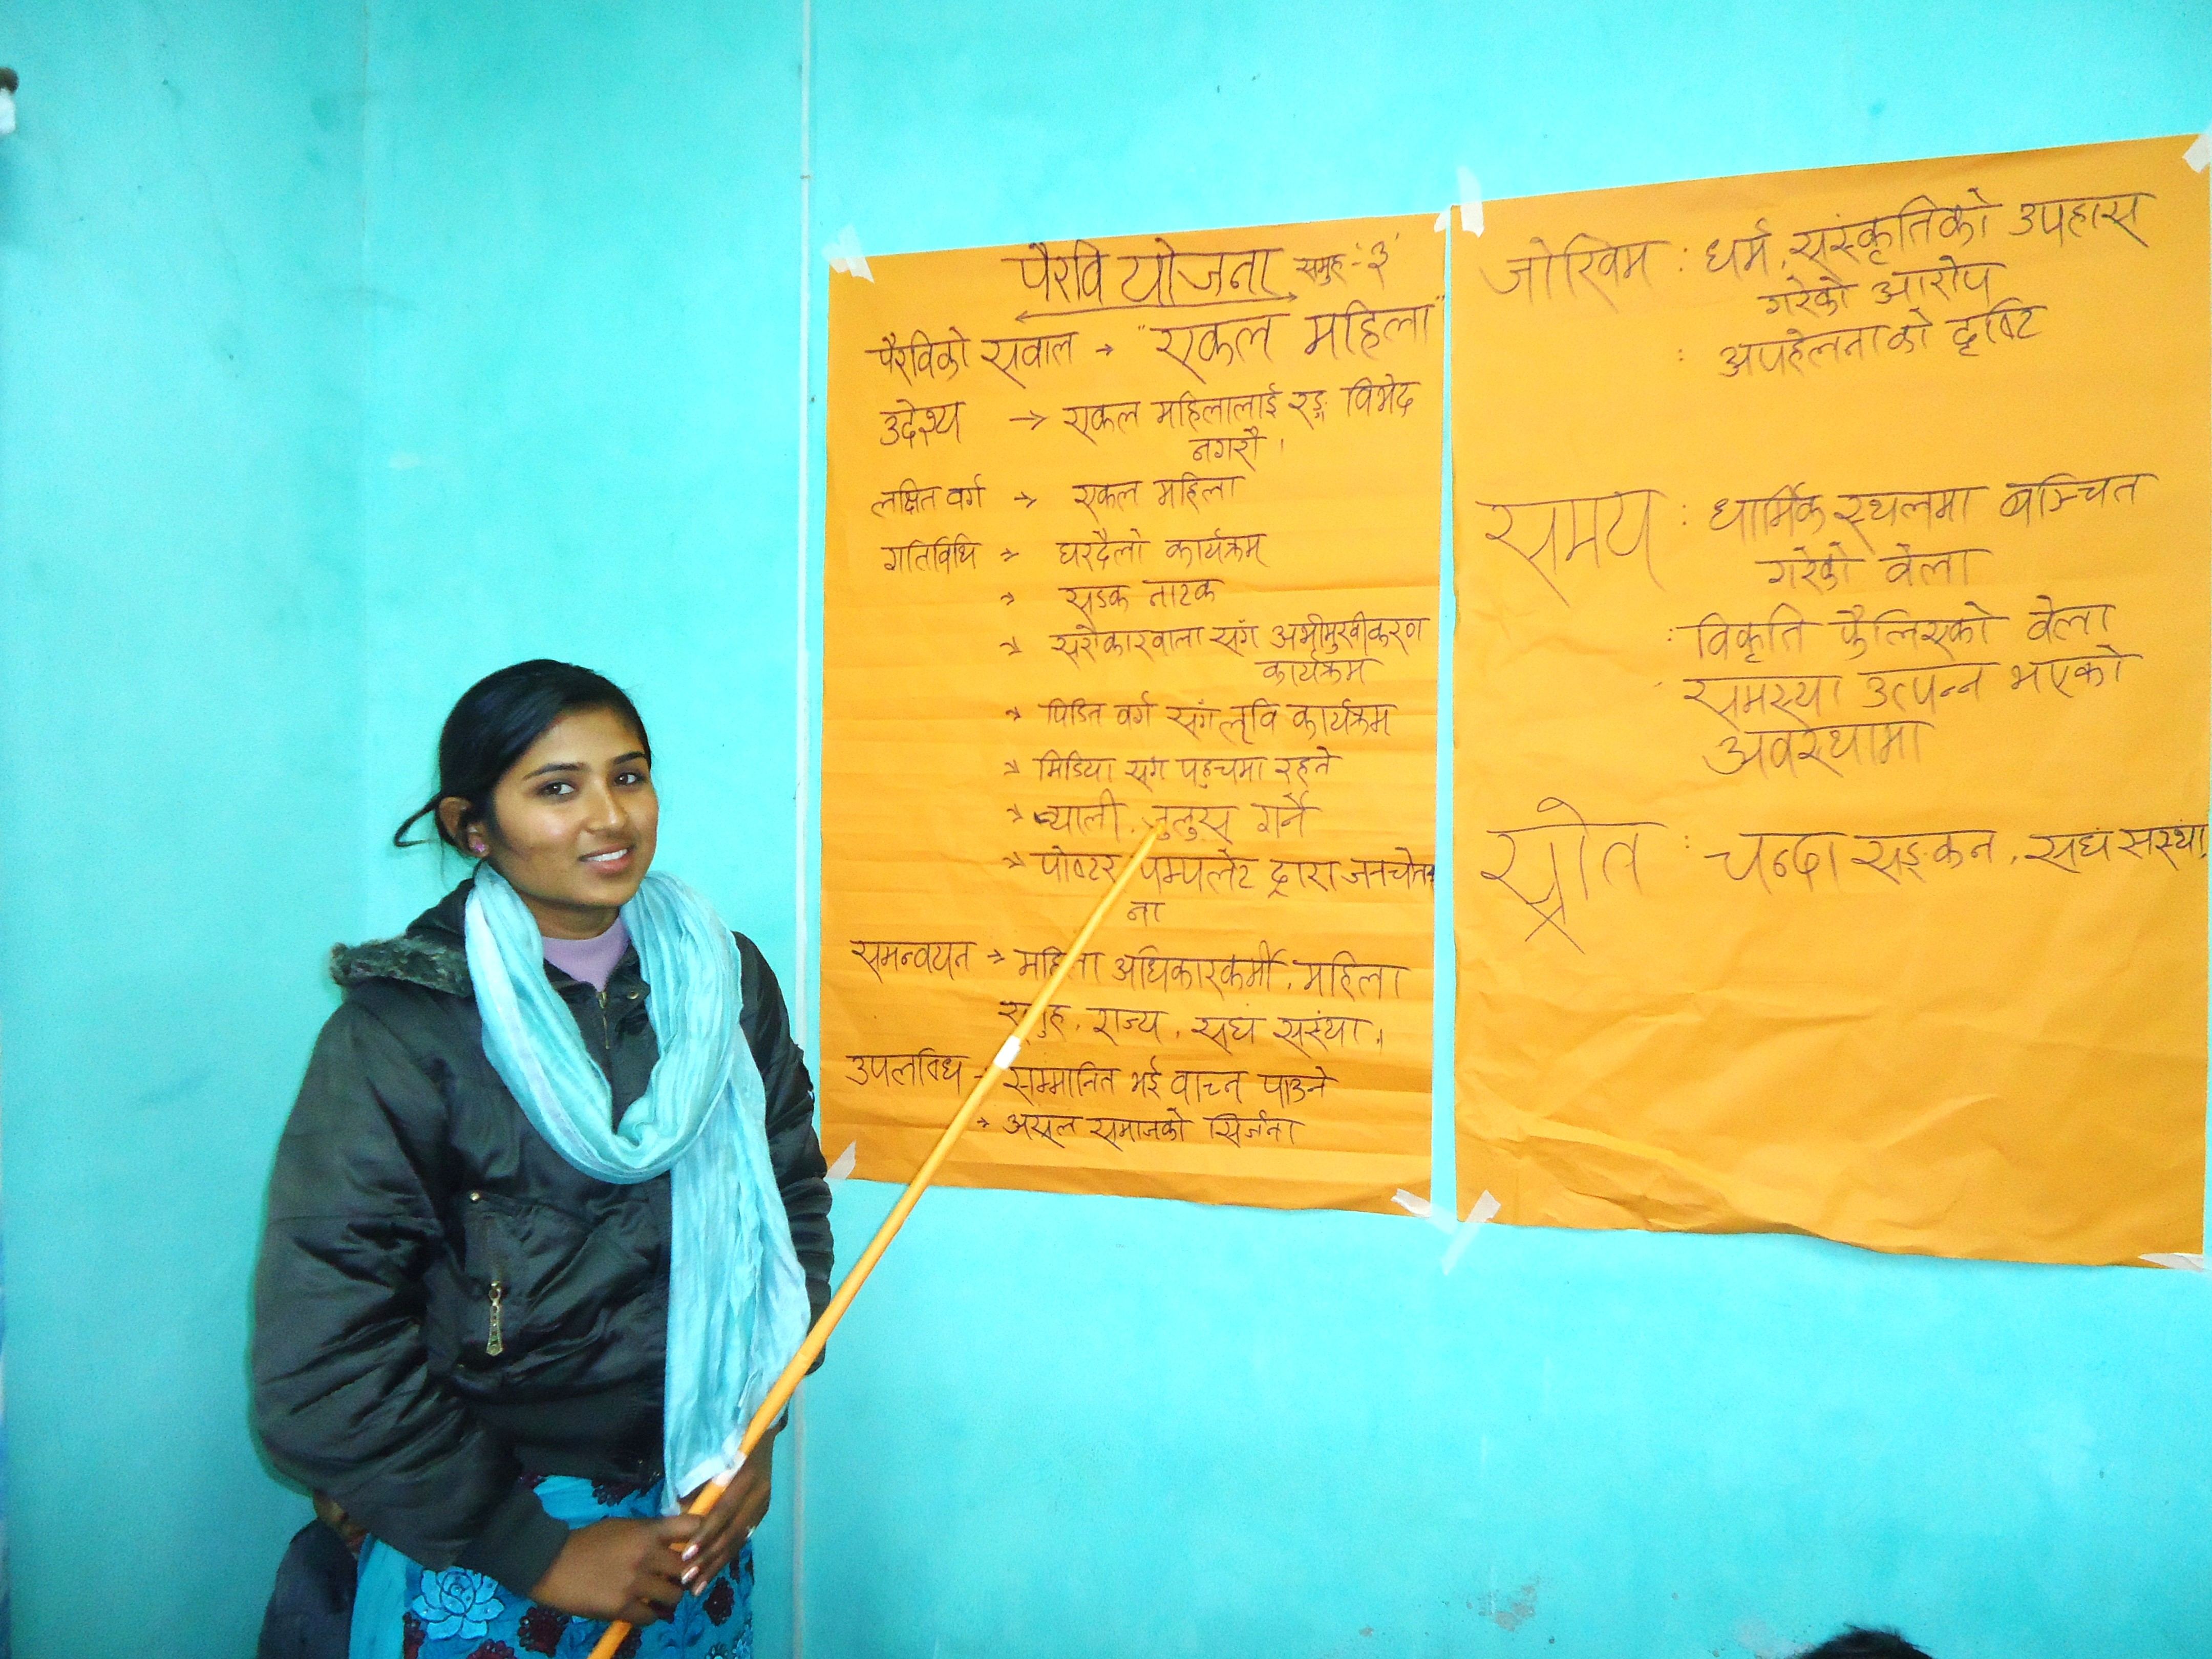 पैरवि योजना समुह-'३'
पैरविको सवाल → "एकल महिला"
उदेश्य → एकल महिलालाई रङ्ग विभेद
नगरौ ।
लक्षित वर्ग → एकल महिला
गतिविधि → घरदैलो कार्यक्रम
→ सडक नाटक
→ सरोकारवाला संग अभीमुखीकरण
कार्यक्रम
→ पिडित वर्ग संग कार्यक्रम
→ मिडिया संग पहुचमा रहने
→ र्‍याली, जुलुस गर्ने
→ पोष्टर पम्पलेट द्वारा जनचेत
ना
समन्वयन → महिला अधिकारकर्मी, महिला
समुह, राज्य, संघ संस्था ।
उपलब्धि → सम्मानित भई वाच्न पाउने
→ असल समाजको सिर्जना
जोखिम : धर्म, संस्कृतिको उपहास
गरेको आरोप
: अपहेलनाको दृष्टि
समय : धार्मिक स्थलमा बञ्चित
गरेको वेला
: विकृति फैलिएको वेला
समस्या उत्पन्न भएको
अवस्थामा
स्रोत : चन्दा सङ्कन, संघ संस्था,